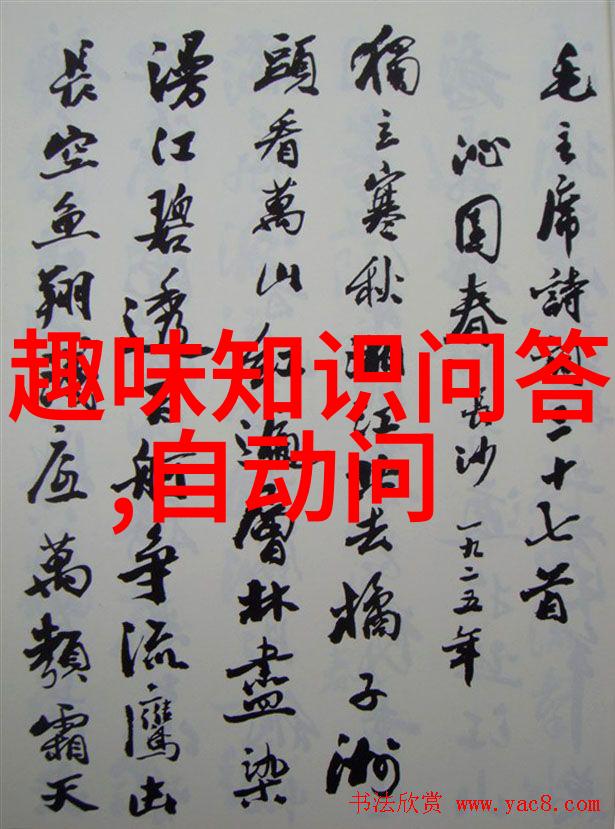 毛主席詩詞三十七首
沁園春 長沙 一九二五年
獨立寒秋湘江北去橘子洲
頭看萬山紅遍層林盡染
漫江碧透百舸争流鷹击
長空魚翔淺底萬類霜天
趣味知识问答
,自动问
书法欣赏 www.yac8.com